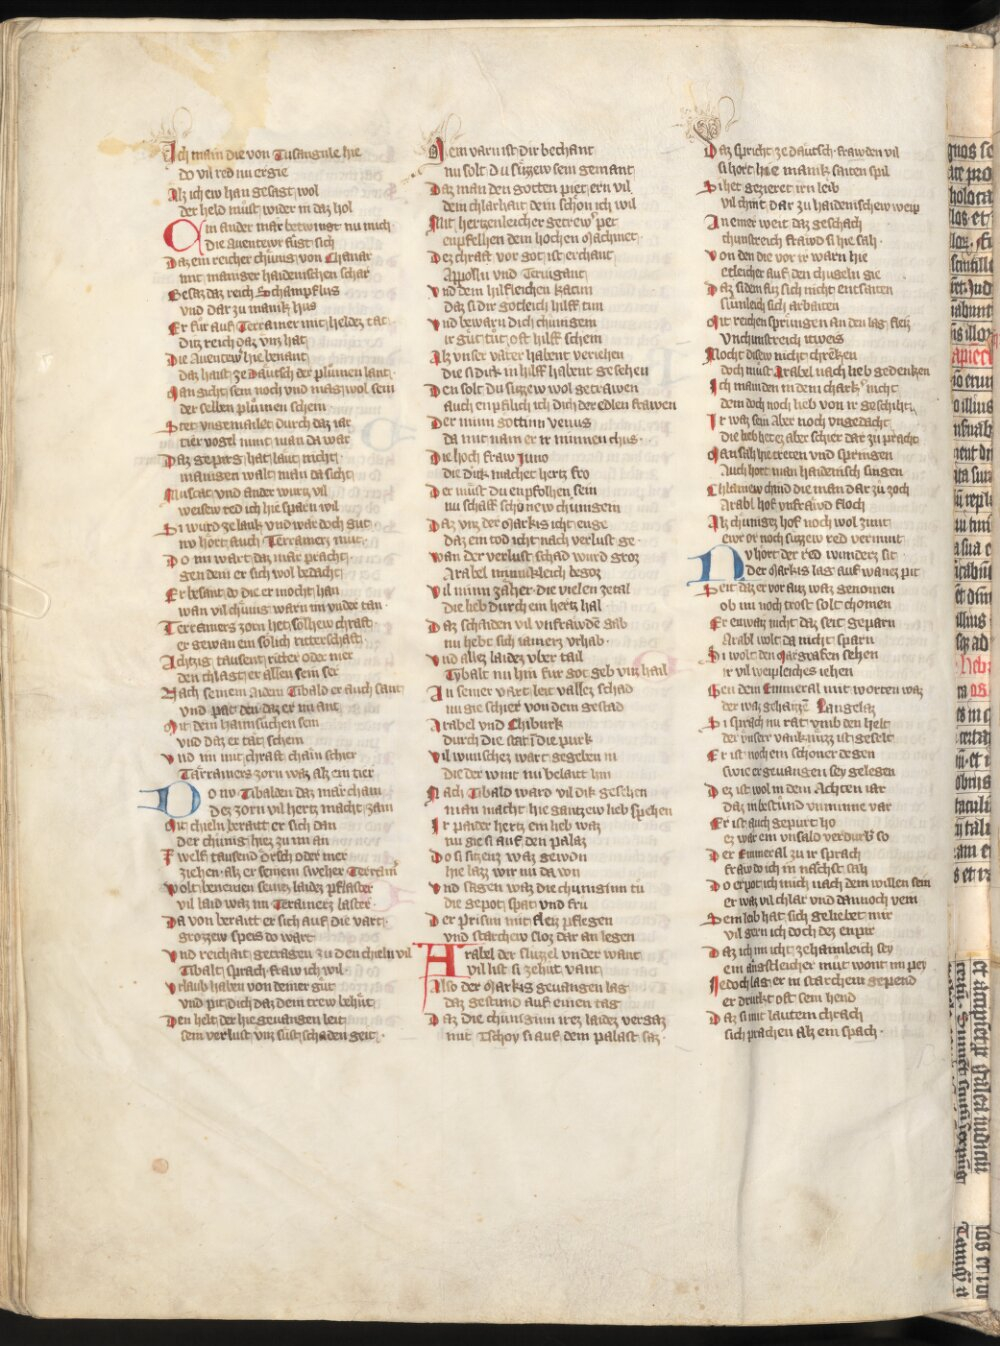 Ich main die von Tusangule hie
do vil red nu ergie
Alz ich ew han gesagt wol
der held müst wider in daz hol
Ein ander mär betwingt nu mich
die Auentewr fügt sich
Daz ein reicher chünig von Chanar
mit maniger haidenischen schar
Besaz daz reich Schampflus
vnd dar zu manik hus
Er für auf Terramer mit heldez tat
ditz reich daz vnz hat
Die Auentewr hie benant
daz haist ze Dautsch der plümen lant
Man gicht sein noch vnd mag wol sein
der selben plümen schein
Pret vngemailet durch daz iar
tier vogel nimt man da war
Daz gepirg hat laut nicht
manigen walt man da sicht
Muscat vnd ander wurtz vil
weisew red ich hie sparn wil
Si wurd ze lank vnd wär doch gut
nv hort auch Terramers mut
Do im wart daz mär pracht
gen dem er sich wol bedacht
Er besant do die er mocht han
wan vil chünig warn im vnder tan
Terramers zorn het solhew chraft
er gewan ein sölich ritterschaft
Achtzig tausent ritter oder mer
den chlagt er allen sein ser
Nach seinem Aidem Tibald er auch sant
vnd pat den daz er im ant
Mit dem haimsuchen sein
vnd daz er tät schein
Vnd im mit chraft chäm schier
Tarramers zorn waz alz ein tier
Do nv Tibalden daz mär cham
dez zorn vil hertz macht zam
Mit chieln berait er sich dan
der chünig hiez zu im an
Zwelf tausend örsch oder mer
ziehen alz er seinem sweher Terram
Wolt benemen seinez laidez pflaster
vil laid waz im Terramerz laster
Da von berait er sich auf die vart
grozzew speis do wart
Vnd reichait getragen zu den chieln vil
Tibalt sprach fraw ich wil
Vrlaub haben von deiner güt
vnd pit dich daz dein trew behüt
Den helt der hie geuangen leit
sein verlust vnz süst schaden geit
Dem varn ist dir bechant
nu solt du süzzew sein gemant
Daz man den gotten piet ern vil
dem chlarhait dein schon ich wil
Mit hertzenleicher getrewer pet
enpfelhen dem hochen Machmet
Dez chraft vor got ist erchant
Appollu und Teruigant
Vnd dem hilfleichen kaun
daz si dir gotleich hilff tun
Vnd bewarn dich chünigein
ir güt tüt oft hilff schein
Alz vnser väter habent veriehen
die si dik in hilff habent gesehen
Den solt du süzzew wol getrawen
auch enpfilich ich dich der edlen frawen
Der minn gottinn venus
da mit nam er ir minnen chus
Die hoch fraw Juno
die dick machet hertz fro
Der müst du enpfolhen sein
nu schaff schönew chünigein
Daz vnz der Markis icht enge
daz ein tod icht nach verlust ge
Wan der verlust schad wurd groz
Arabel minnikleich begoz
Vil minn zäher die vielen ze tal
die lieb durch ein hertz hal
Daz schaiden vil vnfrawde gab
nu hebt sich iamerz vrhab
Vnd allez laidez vber tail
Tybalt nu hin für got geb vnz hail
In seiner vart leit vallez schad
nu gie schier von dem gestad
Arabel vnd Chiburk
durch die stat in die purk
Vil wunschez wart gegeben in
die der wint nu belait hin
Nach Tibald ward vil dik gesehen
man macht hie gantzew lieb spehen
Ir paider hertz ein lieb waz
nu gie si auf den palaz
Do si sitzenz waz gewon
hie lazz wir nu da von
Vnd sagen waz die chuniginn tü
die gepot spat vnd frü
Der prisun mit fleiz pflegen
vnd starchew sloz dar an legen
Arabel der sluzzel vnder want
vil list si ze hüt vant
Also der Markis geuangen lag
daz gestund auf einen tag
Daz die chünginn irez laidez vergaz
mit Tschoy si auf dem palast saz
Daz spricht ze däutsch frawden vil
si hort hie manik saiten spil
Si het gezieret irn leib
vil chint dar zu haidenischew weip
In einer weit daz geschach
chunstreich frawd si hie sah
Von den die vor ir warn hie
etleicher auf den chugeln gie
Daz si dem füz sich nicht entsaiten
sümleich sich arbaiten
Mit reichen sprüngen an den lag fleiz
Vnchunstreich itweis
Mocht disew nicht chrenken
doch müst Arabel nach lieb gedenken
Ich main den in dem charker nicht
dem doch noch lieb von ir geschiht
Ir waz sein aber noch vngedacht
die lieb het ez aber schier dar zu pracht
Man sah hie treten vnd springen
Auch hort man haidenisch singen
Chlainew chind die man dar zu zoch
Arabl hof vnfrawd floch
Alz chünigez hof noch wol zimt
ewr or noch süzzew red vernimt
Nv hort der red wunders sit
Der Markis lag auf wanez pit
Seit daz er vor auz waz genomen
ob im noch trost solt chomen
Er enwaiz nicht daz seit geparn
Arabl wolt da nicht sparn
Si wolt den Margrafen sehen
ir vil weipleichez iehen
Gen dem Emmeral mit worten waz
der waz gehaizzen Langelaz
Si sprach nu rat vmb den helt
der vnser vanknüzz ist geselt
Er ist noch ein schoner degen
swie er geuangen sey gelegen
Dez ist wol in dem Achten iar
daz in bestünd vnminne var
Er ist auch gepurt ho
ez wär ein vnsald verdurb so
Der Emmeral zu ir sprach
fraw do ich in nächst sah
Do erpot ich mich nach dem willen sein
er waz vil chlar vnd dannoch vein
Sein lob hat sich geliebet mir
vil gern ich doch dez enpir
Daz ich im icht ze haimleich sey
ein angstleicher müt wont im pey
Jedoch lag er in starchem gepend
er drukt oft sein hend
Daz si mit lautem chrach
sich prachen alz ein spach